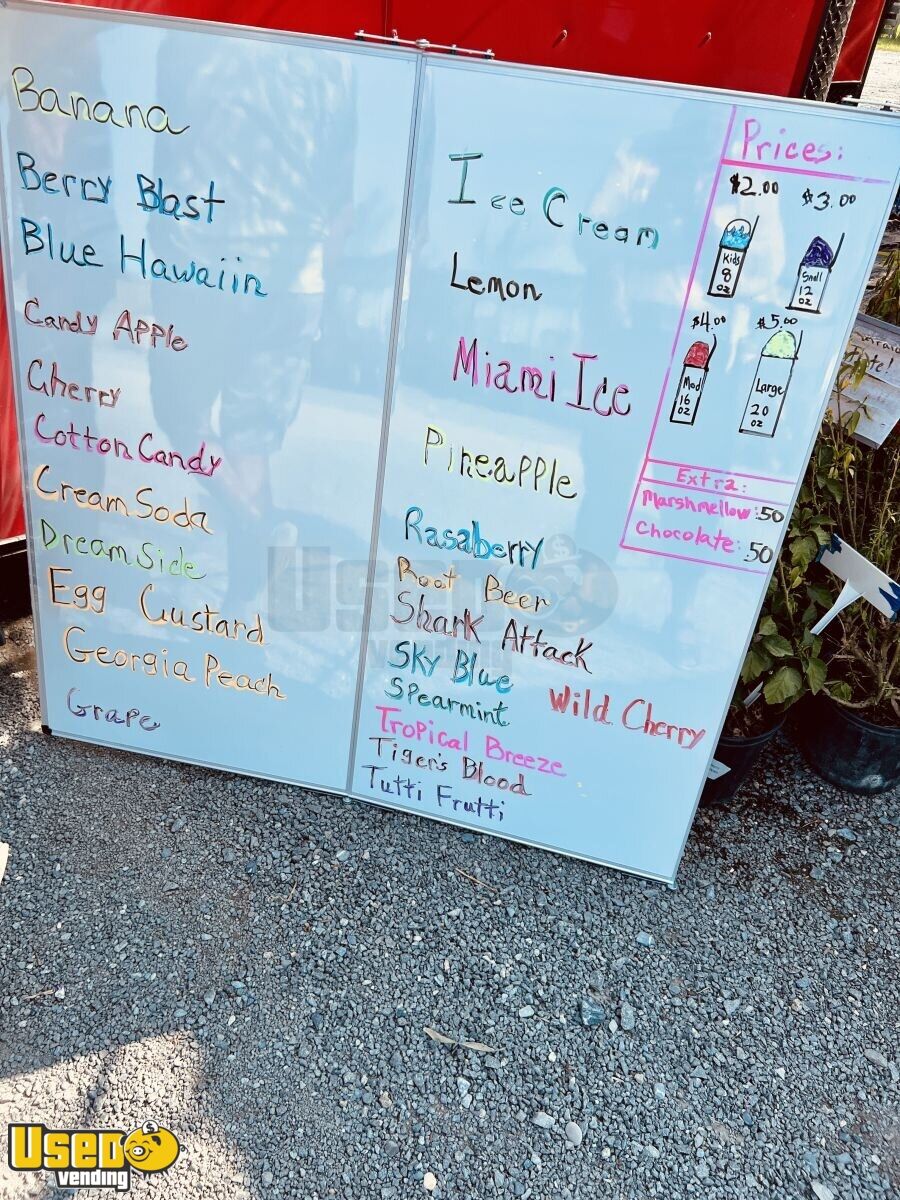 Banana
Berry Blast
Blue Hawaiin
Candy Apple
Cherry
Cotton Candy
Cream Soda
Dream Side
Egg Custard
Georgia Peach
Grape
Ice Cream
Lemon
Miami Ice
Pineapple
Rasaberry
Root Beer
Shark Attack
Sky Blue
Spearmint
Wild Cherry
Tropical Breeze
Tiger's Blood
Tutti Frutti
Prices:
$2.00 $3.00
Kids
8
oz
Small
12
oz
$4.00 $5.00
Med
16
oz
Large
20
oz
Extra:
Marshmellow: .50
Chocolate: .50
Used
vending
Used
vending